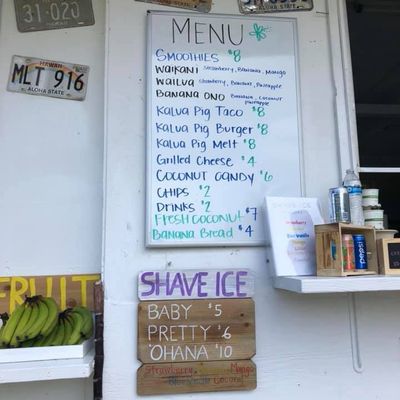 31·020
HAWAII
MLT 916
ALOHA STATE
MENU
SMOOTHIES $8
WAIKANI Strawberry, Banana, Mango
WAILUA Strawberry, Banana, Pineapple
BANANA ONO Banana, Coconut
pineapple
Kalua Pig Taco $8
Kalua Pig Burger $8
Kalua Pig Melt $8
Grilled Cheese $4
COCONUT CANDY $6
CHIPS $2
DRINKS $2
FRESH COCONUT $7
Banana Bread $4
SHAVE ICE
pepsi
FRUIT
SHAVE ICE
BABY $5
PRETTY $6
'OHANA $10
Strawberry Mango
Coconut